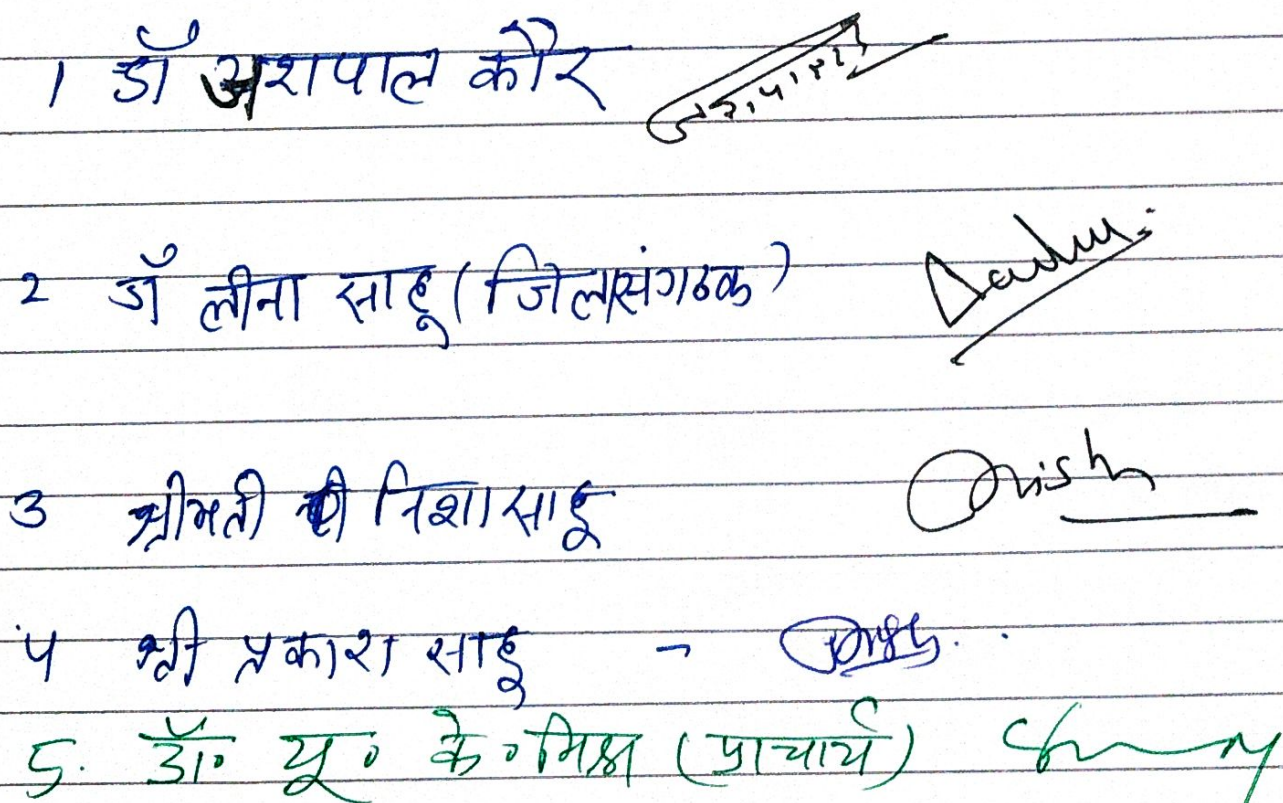 1 डॉ अशपाल कौर
2 डॉ लीना साहू (जिला संगठक)
3 श्रीमती निशा साहू
4 श्री प्रकाश साहू -
5. डॉ० यू० के० मिश्रा (प्राचार्य)